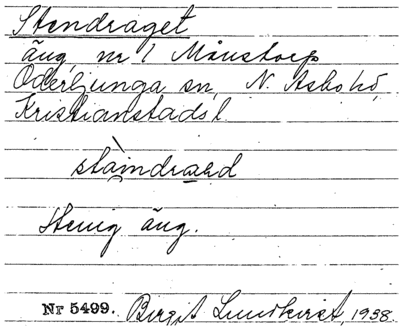 Stendraget
äng, nr 1 Månstorp
Oderljunga sn, N. Åsbo hd,
Kristianstads l
Stenig äng.
Nr 5499. Birgit Lundkvist, 1938.